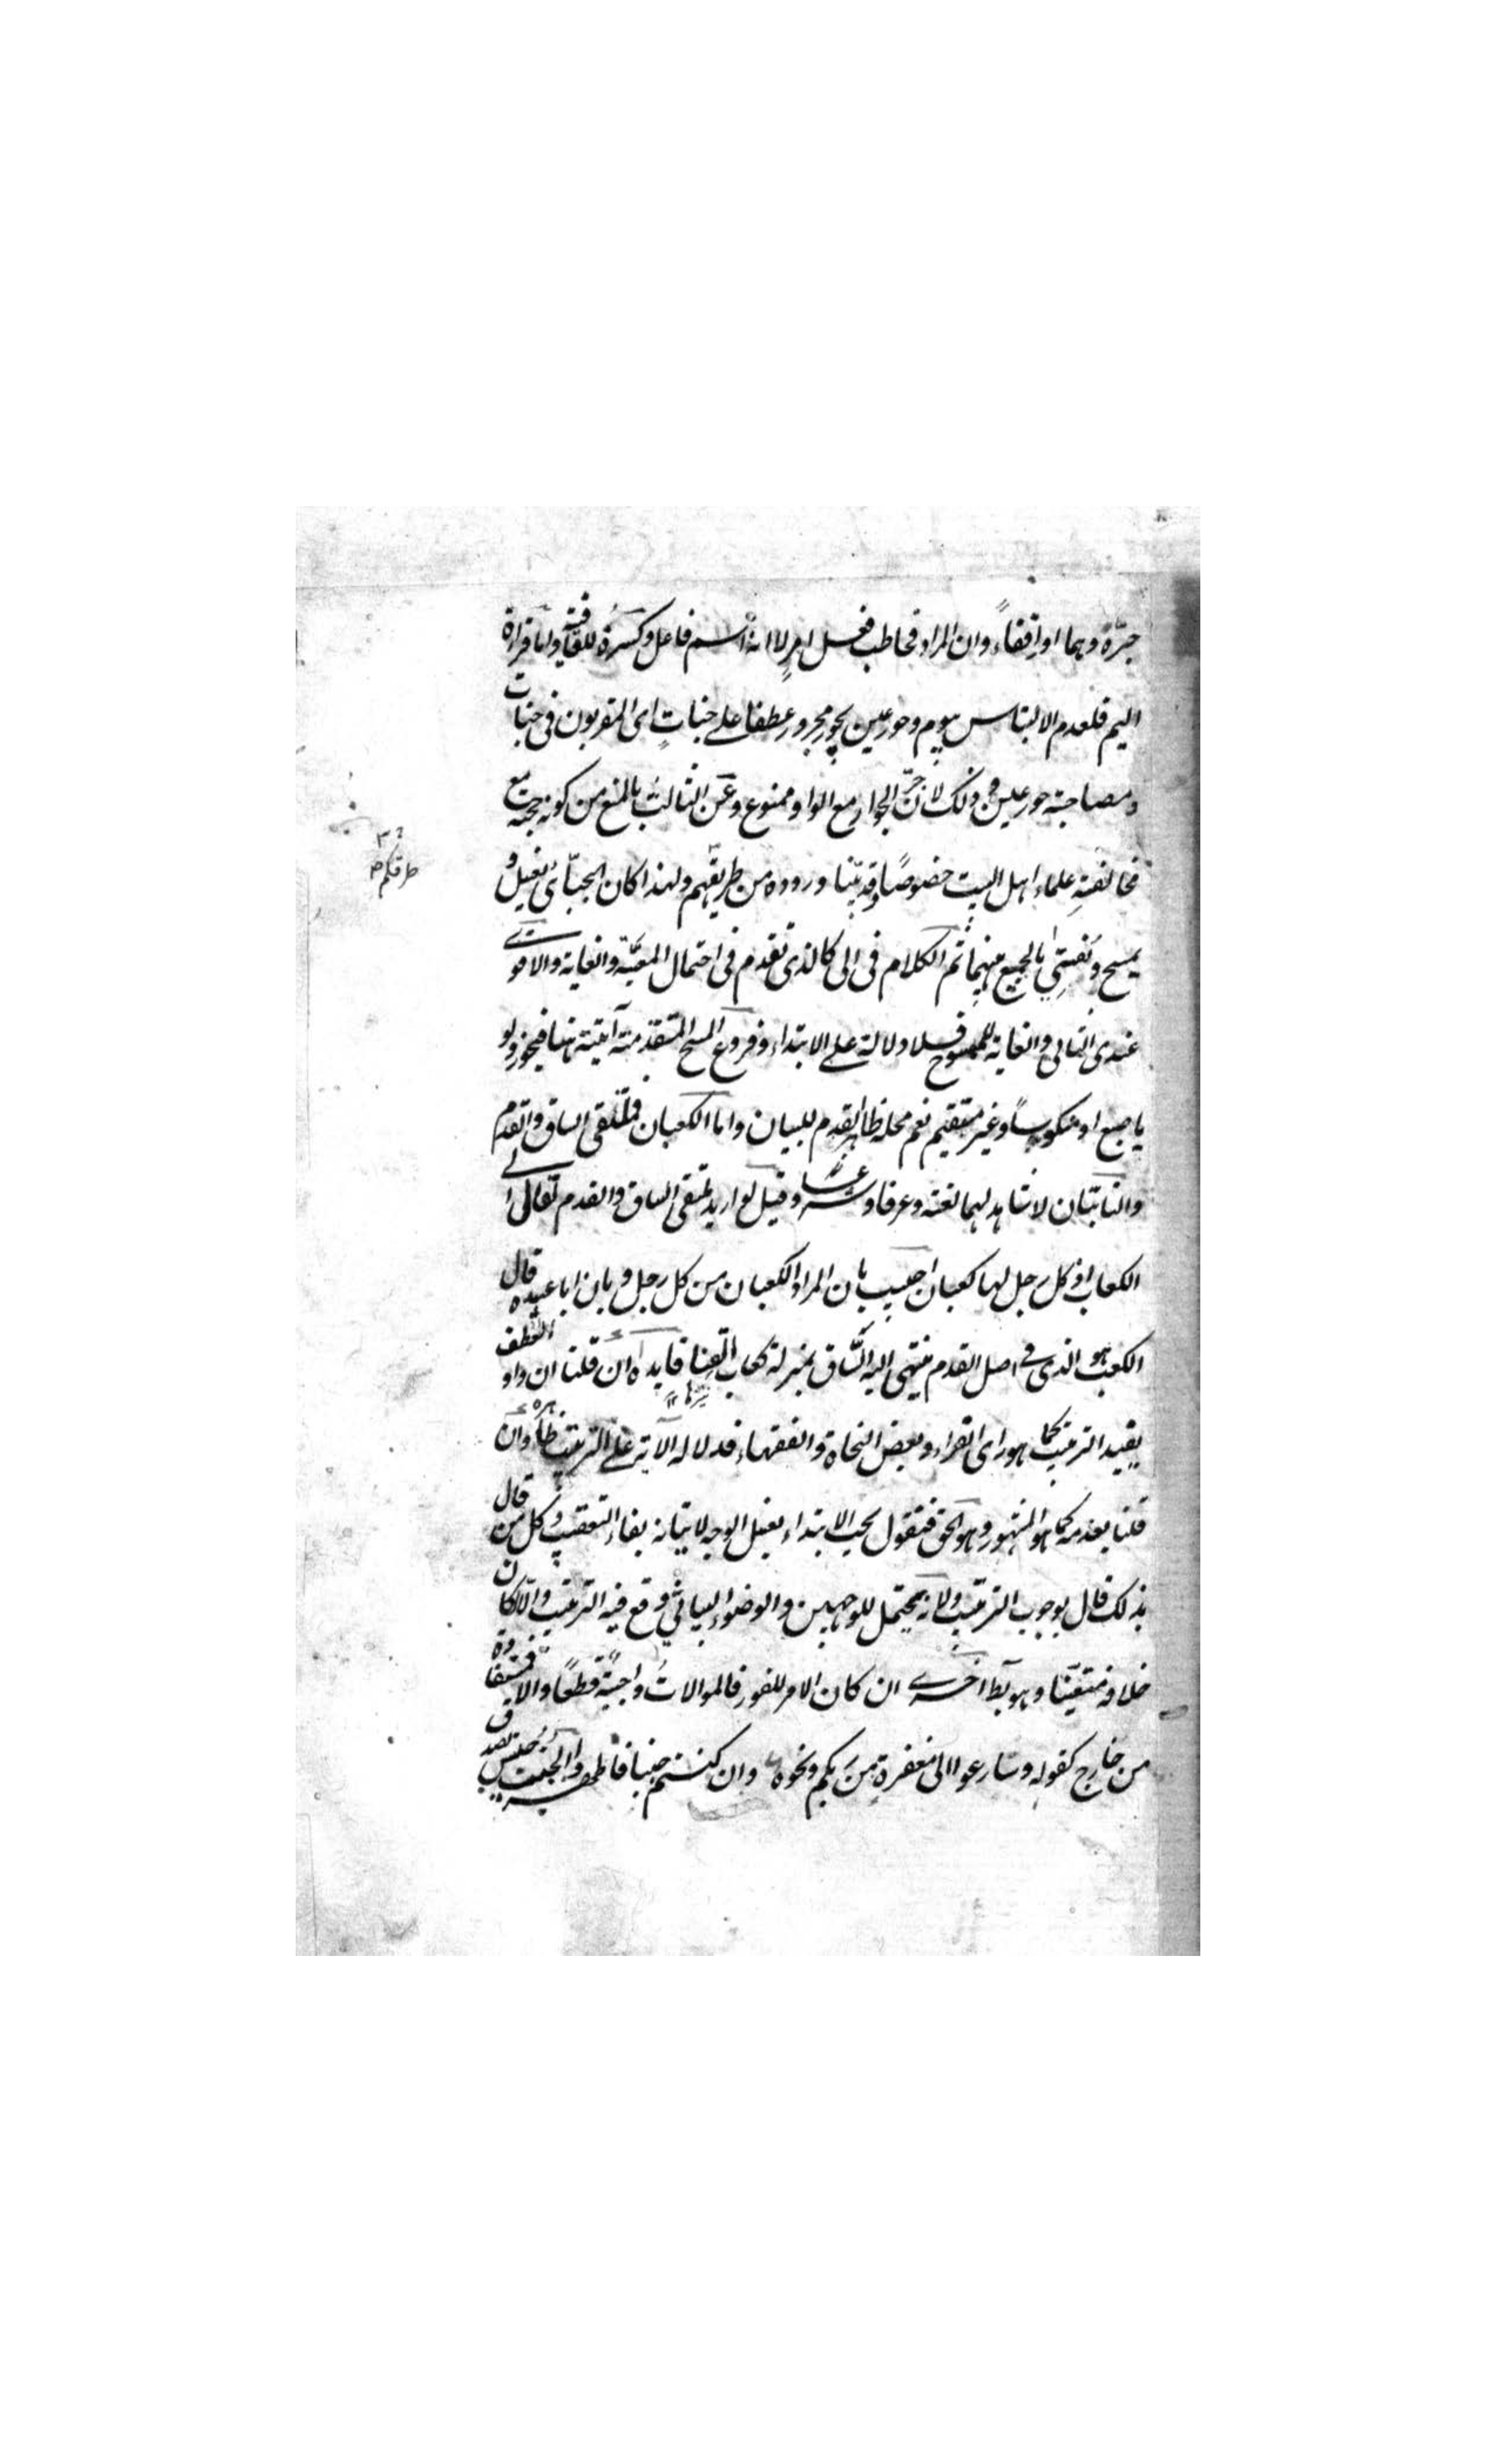 جرّه وهما او اقفاءً وان المراد فخاطب فعل امرٍ لا انه اسم فاعل وكسره للقافية واما قراءة
اليم فلعدم الالتباس بيوم وحور عين بجور مجرور عطفا على جناتٍ اى المقربون فى جنات
ومصاحبة حور عين وذلك لانّ جرّ الجوار مع الواو ممنوع وعن الثالث بالمنع من كونه حجة مع
مخالفة علماء اهل البيت خصوصًا وقد بيّنا وروده من طريقهم ولهذا كان الجبّائى يغسل و
يمسح ويفتي بالجمع بينهما ثم الكلام فى الى كالذى تقدم فى احتمال المعيّة والغاية والاقوى
عندى الثانى والغاية للممسوح فلا دلالة على الابتداء وفروع المسح المتقدمة آتية هنا فيجوز ولو
باصبع او منكوسًا وغير مستقيم نعم محله ظاهر القدم للبيان واما الكعبان فملتقى الساق والقدم
والناتيان لا شاهد لهما لغة وعرفا وشرعا وقيل لو اريد ملتقى الساق والقدم لقال الى
الكعاب اذ كل رجل لها كعبان اجيب بان المراد الكعبان من كل رجل وبان ابا عبيده قال
الكعب هو الذى فى اصل القدم ينتهى اليه الساق بمنزلة كعاب القنا فايده ان قلنا ان واو العطف
يفيد الترتيب كما هو راى الفراء وبعض النحاة والفقهاء فدلالة الآية على الترتيب ظاهره وان
قلنا بعدمه كما هو المشهور وهو الحق فنقول يجب الابتداء بغسل الوجه لاتيانه بفاء التعقيب وكل من قال
بذلك قال بوجوب الترتيب ولانه يحتمل للوجهين والوضوء البيانى وقع فيه الترتيب والّا لكان
خلافه متعيّنا وهو بط اخرى ان كان الامر للفور فالموالات واجبة قطعًا والا فمستفادة
من خارج كقوله وسارعوا الى مغفرة من ربكم ونحوه وان كنتم جنبا فاطهروا الجنب جنس يصدق
طرقكم